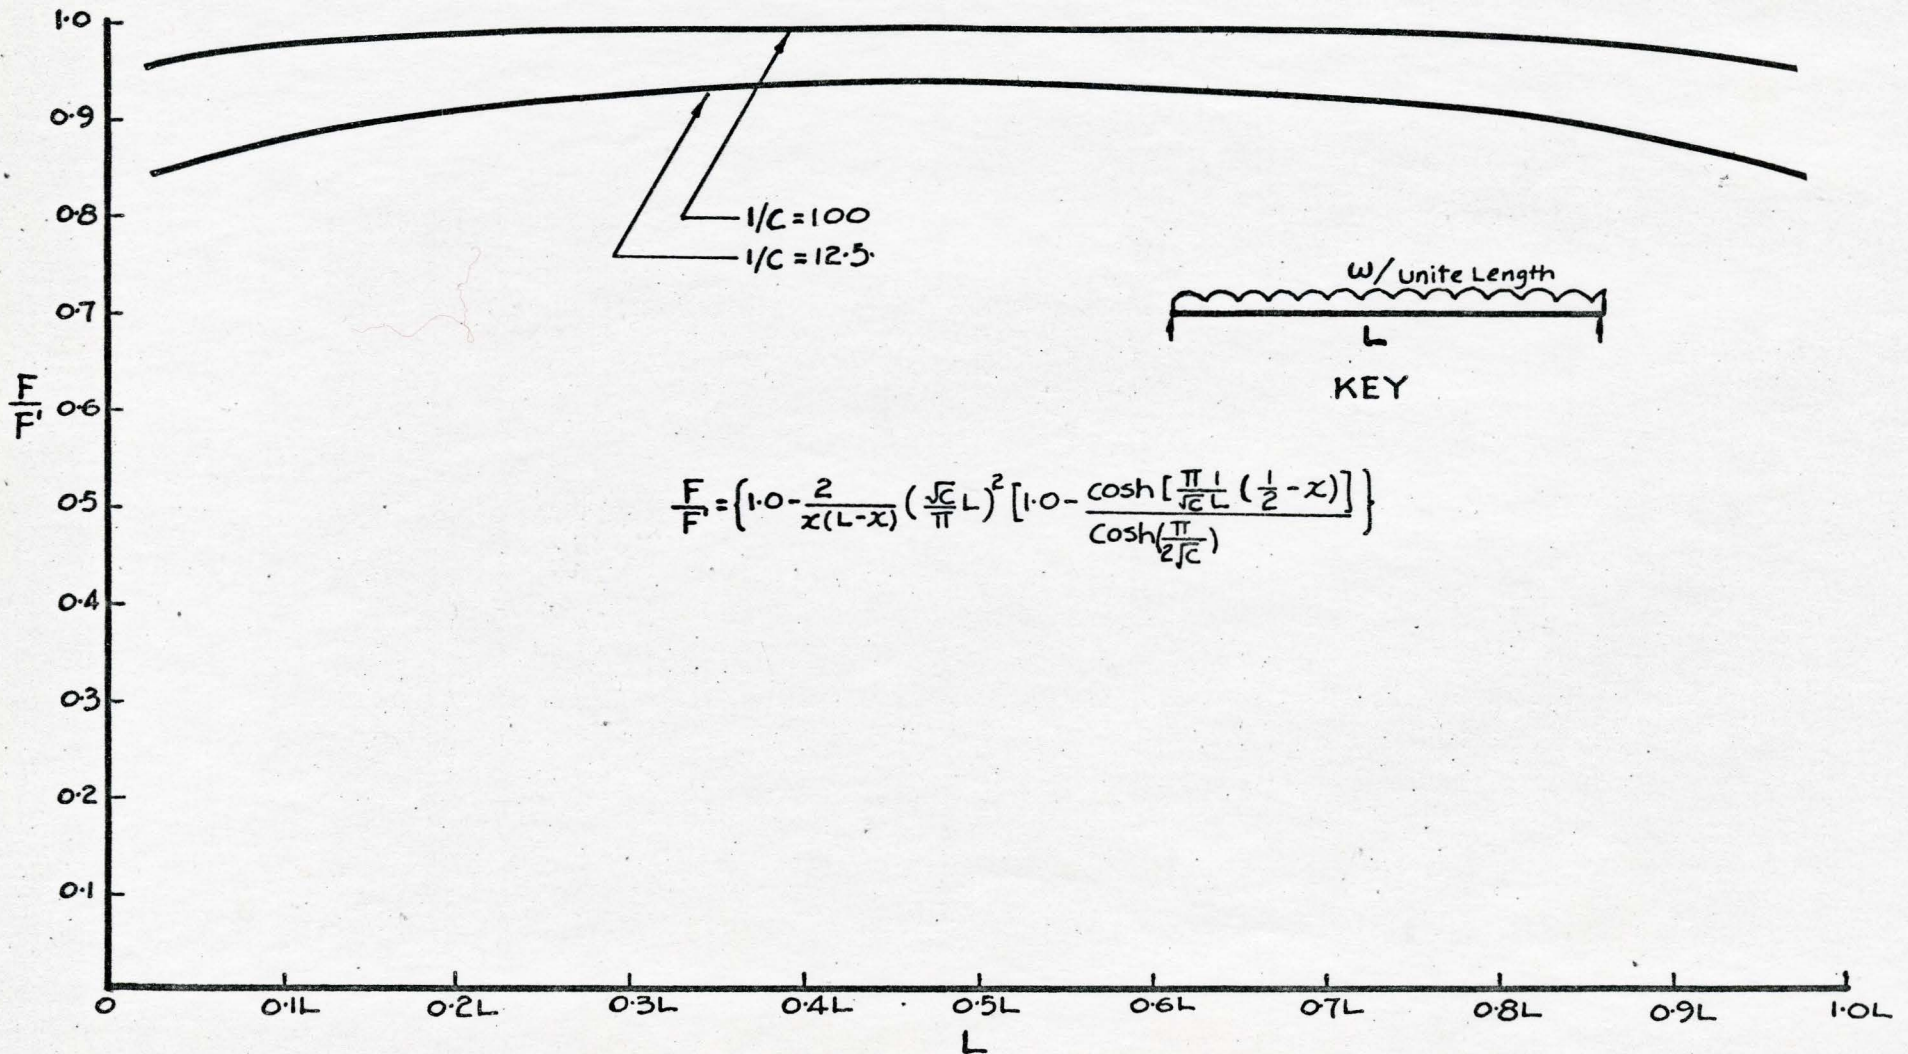 1.0
0.9
0.8
0.7
0.6
0.5
0.4
0.3
0.2
0.1
F/F'
1/C = 100
1/C = 12.5.
ω/unite Length
L
KEY
F/F' = {1.0 - 2/x(L-x) (√C/π L)² [1.0 - cosh[π/√C 1/L (1/2 - x)]/Cosh(π/2√C)]}
0 0.1L 0.2L 0.3L 0.4L 0.5L 0.6L 0.7L 0.8L 0.9L 1.0L
L